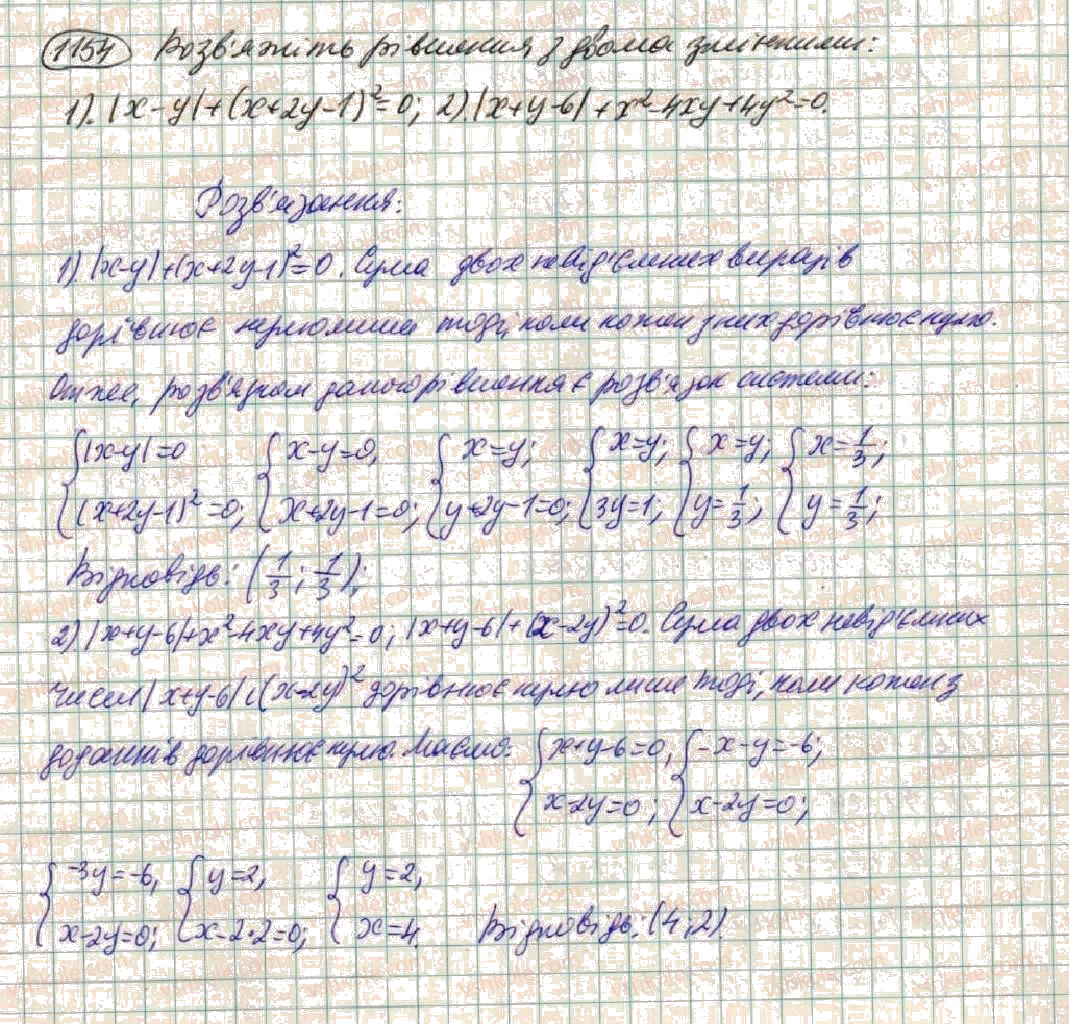 1154 Розв'яжіть рівняння з двома змінними:
1). |x-y|+(x+2y-1)²=0; 2). |x+y-6|+x²-4xy+4y²=0.
Розв'язання:
1). |x-y|+(x+2y-1)²=0. Сума двох невід'ємних виразів
дорівнює нулю лише тоді, коли кожен з них дорівнює нулю.
Отже, розв'язком даного рівняння є розв'язок системи:
{|x-y|=0 {x-y=0, {x=y; {x=y; {x=y; {x=1/3;
(x+2y-1)²=0; x+2y-1=0; y+2y-1=0; 3y=1; y=1/3; y=1/3;
Відповідь: (1/3; 1/3);
2) |x+y-6|+x²-4xy+4y²=0; |x+y-6|+(x-2y)²=0. Сума двох невід'ємних
чисел |x+y-6| і (x-2y)² дорівнює нулю лише тоді, коли кожен з
доданків дорівнює нулю. Маємо: {x+y-6=0, {-x-y=-6;
x-2y=0; x-2y=0;
{-3y=-6, {y=2, {y=2,
x-2y=0; x-2·2=0; x=4 Відповідь: (4;2)